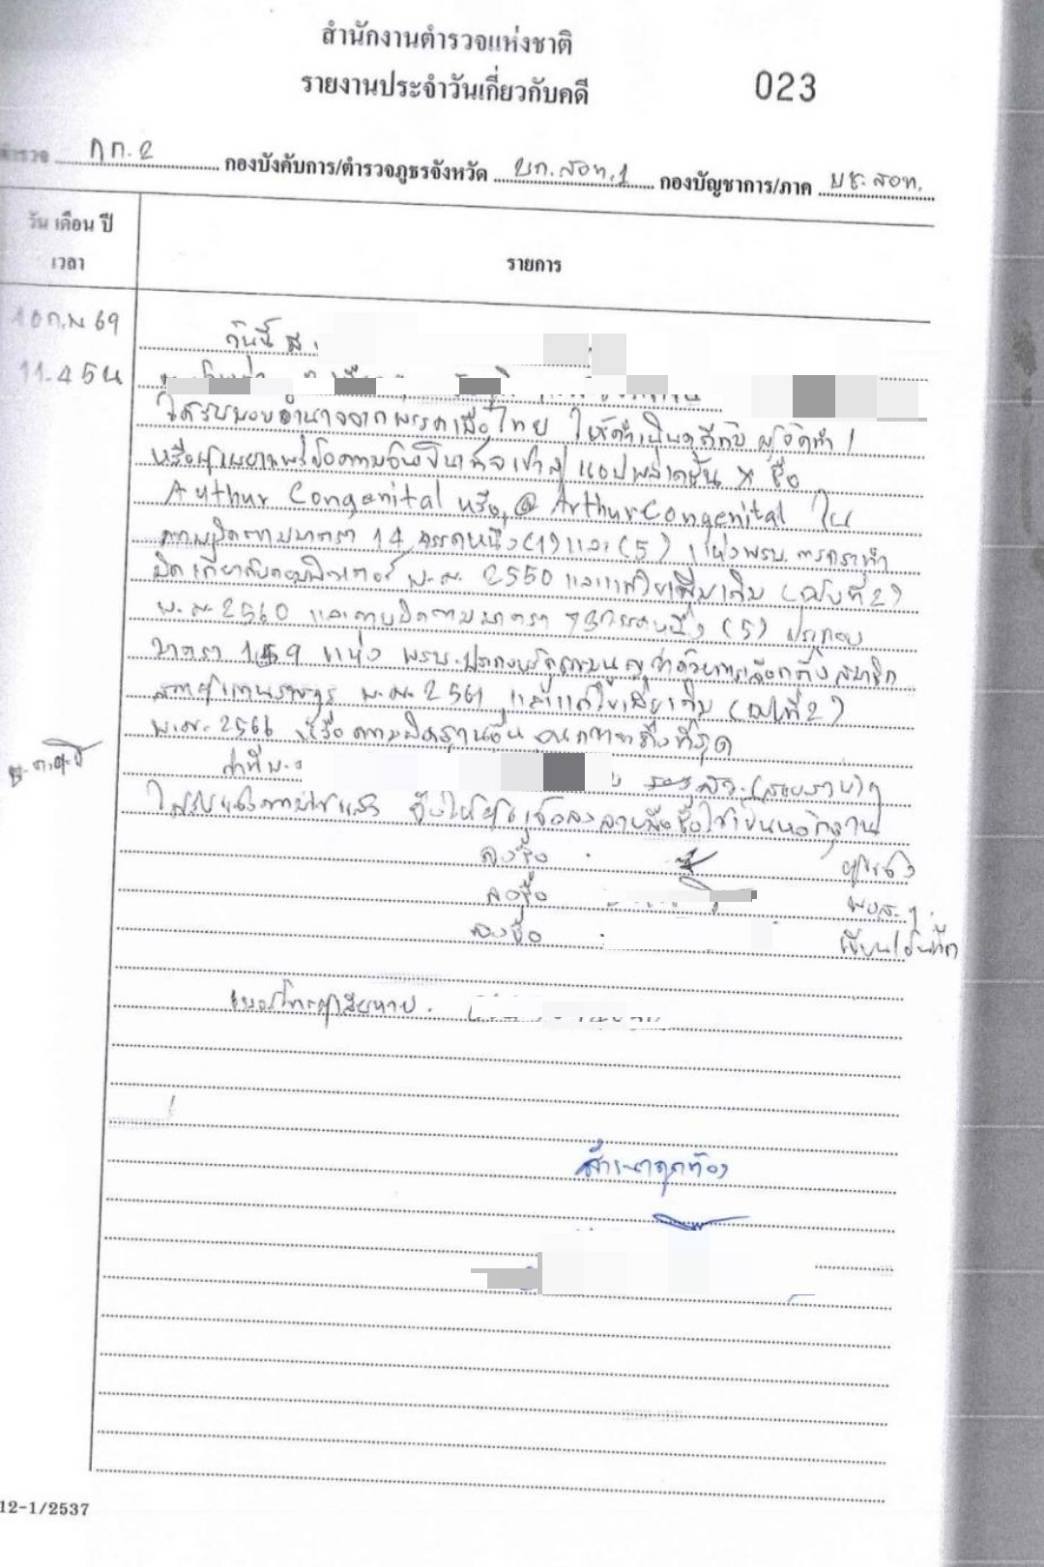 สำนักงานตำรวจแห่งชาติ
รายงานประจำวันเกี่ยวกับคดี
023
ตำรวจ กก.2 กองบังคับการ/ตำรวจภูธรจังหวัด บก.สอท.1 กองบัญชาการ/ภาค บช.สอท.
วัน เดือน ปี
เวลา
รายการ
10 ก.พ 69
11.45 น
วันนี้
ได้รับมอบอำนาจจากพรรคเพื่อไทย ให้ดำเนินคดีกับ ผู้จัดทำ/
หรือผู้เผยแพร่ข้อความอันเป็นเท็จเข้าสู่ แอปพลิเคชั่น X ชื่อ
Authur Congenital หรือ @ArthurCongenital ใน
ความผิดตามมาตรา 14 วรรคหนึ่ง (1) และ (5) แห่งพรบ. การกระทำ
ผิดเกี่ยวกับคอมพิวเตอร์ พ.ศ. 2550 และแก้ไขเพิ่มเติม (ฉบับที่ 2)
พ.ศ. 2560 และความผิดตามมาตรา 73 วรรคหนึ่ง (5) ประกอบ
มาตรา 159 แห่ง พรบ.ประกอบรัฐธรรมนูญว่าด้วยการเลือกตั้งสมาชิก
สภาผู้แทนราษฎร พ.ศ. 2561 และแก้ไขเพิ่มเติม (ฉบับที่ 2)
พ.ศ. 2566 หรือความผิดฐานอื่น จนกว่าจะถึงที่สุด
รอง สว.(สอบสวน)ฯ
ได้รับแจ้งความไว้แล้ว จึงให้ผู้แจ้งลงลายมือชื่อไว้เป็นหลักฐาน
ลงชื่อ ผู้แจ้ง
ลงชื่อ พงส.ฯ
ลงชื่อ เขียน/บันทึก
เบอร์โทรผู้เสียหาย.
สำเนาถูกต้อง
12-1/2537